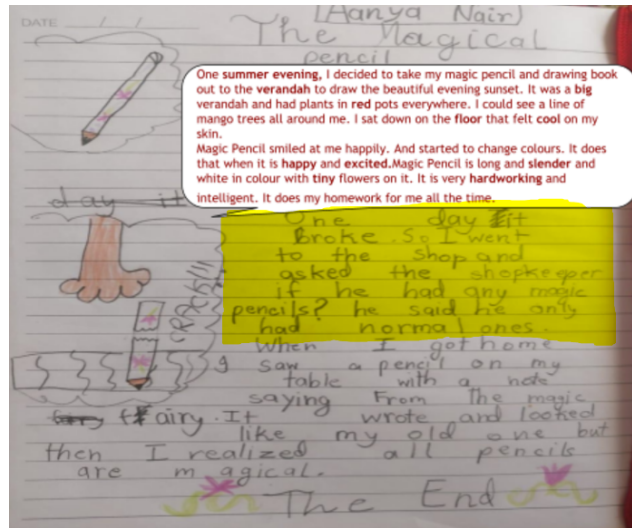 DATE / /
[Aanya Nair]
The Magical
pencil
One summer evening, I decided to take my magic pencil and drawing book
out to the verandah to draw the beautiful evening sunset. It was a big
verandah and had plants in red pots everywhere. I could see a line of
mango trees all around me. I sat down on the floor that felt cool on my
skin.
Magic Pencil smiled at me happily. And started to change colours. It does
that when it is happy and excited.Magic Pencil is long and slender and
white in colour with tiny flowers on it. It is very hardworking and
intelligent. It does my homework for me all the time.
day it
One day it
broke. So I went
to the shop and
asked the shopkeeper
if he had any magic
pencils? he said he only
had normal ones.
CRACK!!!
When I got home
I saw a pencil on my
table with a note
saying From the magic
fairy. It wrote and looked
like my old one but
then I realized all pencils
are magical.
The End